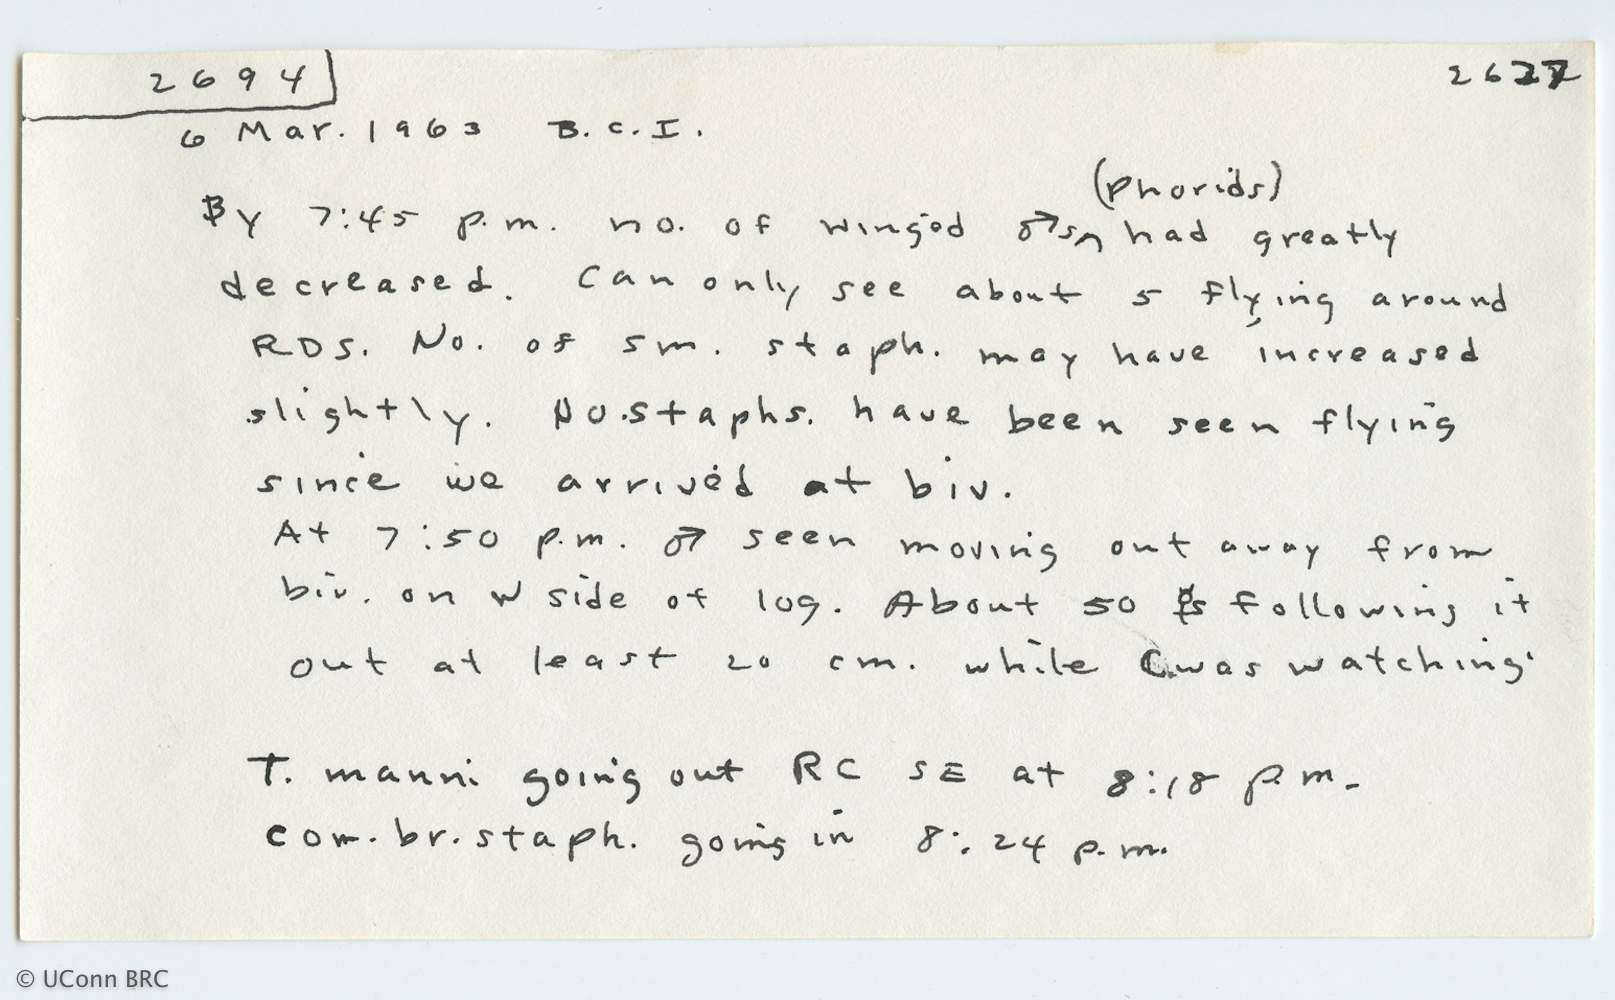 2694
2627
6 Mar. 1963 B.C.I.
(phorids)
By 7:45 p.m. no. of winged ♂s ^ had greatly
decreased. Can only see about 5 flying around
RDS. No. of sm. staph. may have increased
slightly. No. staphs. have been seen flying
since we arrived at biv.
At 7:50 p.m. ♂ seen moving out away from
biv. on W side of log. About 50 following it
out at least 20 cm. while C was watching.
T. manni going out RC SE at 8:18 p.m.
com. br. staph. going in 8:24 p.m.
© UConn BRC